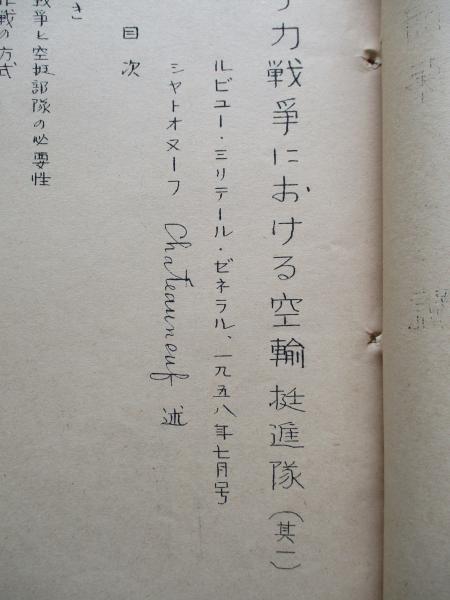 カ戦争における空輸挺進隊（其一）
ルビュー・ミリテール・ゼネラル、一九五八年七月号
シャトオヌーフ Chateauneuf 述
目次
き
戦争と空挺部隊の必要性
作戦の方式